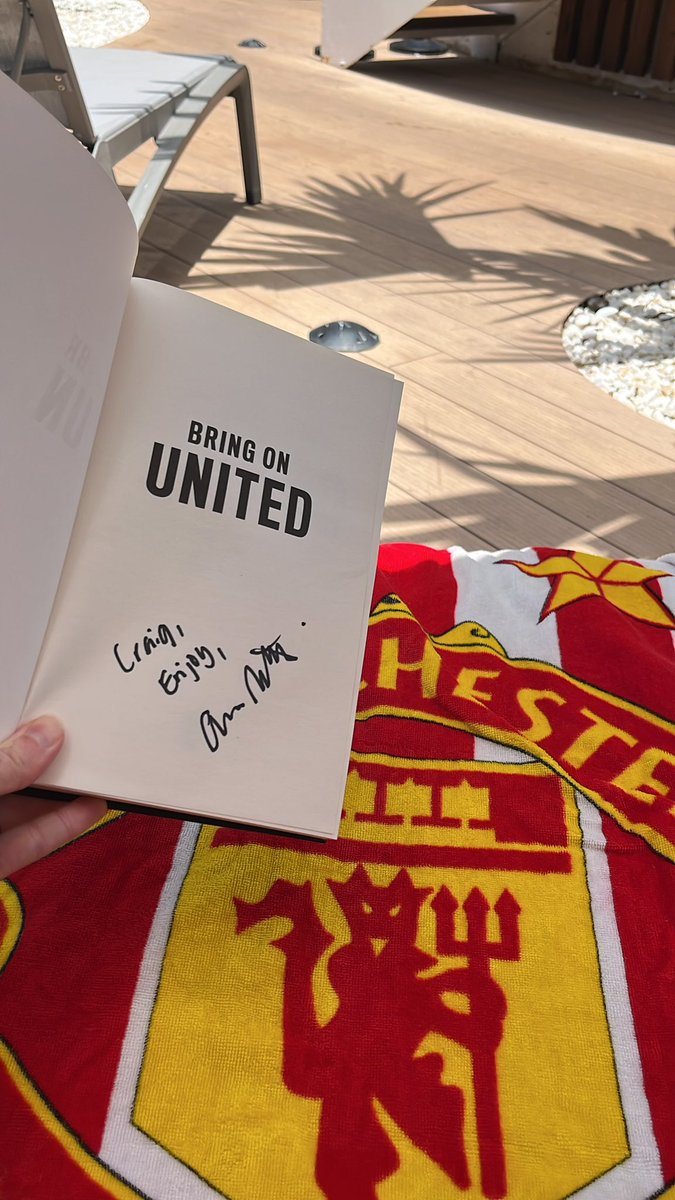 BRING ON
UNITED
Craig,
Enjoy,
CHESTE